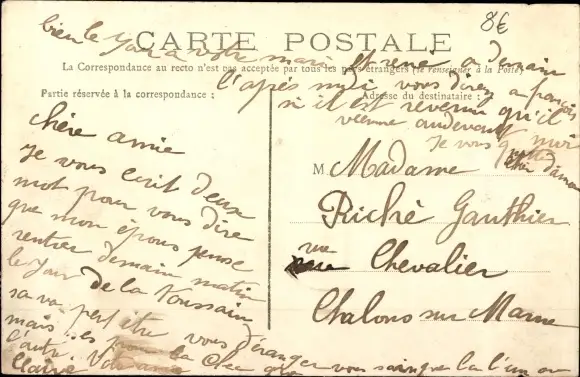 8€
bien le jour a votre mari Et rené a demain
l'aprés midi vous direz a françois
si il est revenu qu'il
vienne audevant moi
Je vous quitte
CARTE POSTALE
La Correspondance au recto n'est pas acceptée par tous les pays étrangers (se renseigner à la Poste)
Partie réservée à la correspondance :
Adresse du destinataire :
chère amie
Je vous écrit deux
mot pour vous dire
que mon époux pense
rentrer demain matin
le jour de la Toussain
sa va pert être vous déranger vous soingnre la l'un ou
mais ses pour la
l'autre Votre amie
Claire
M Madame
Riché Gauthier
rue Chevalier
Chalons sur Marne